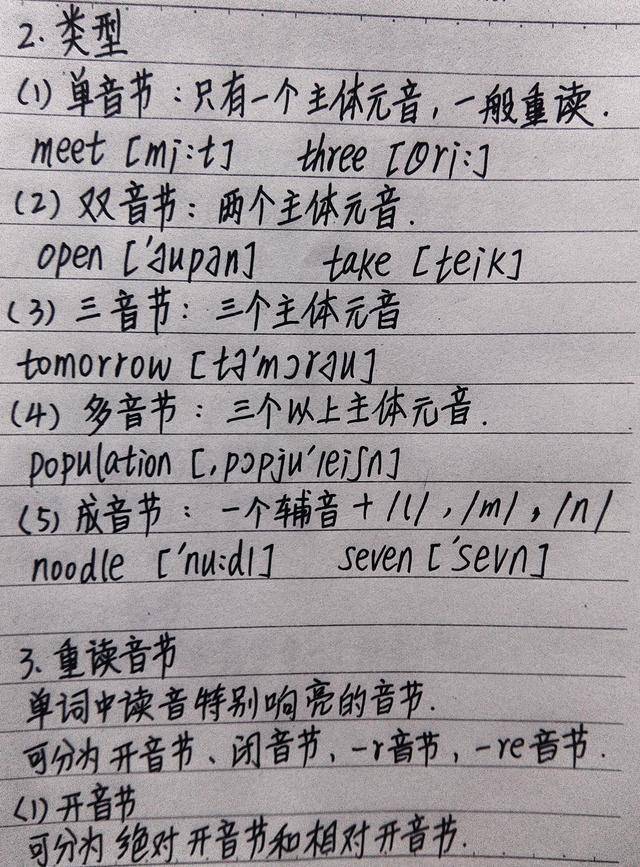 2. 类型
(1) 单音节：只有一个主体元音，一般重读.
meet [mi:t] three [θri:]
(2) 双音节：两个主体元音.
open ['əupən] take [teik]
(3) 三音节：三个主体元音
tomorrow [tə'mɔrəu]
(4) 多音节：三个以上主体元音.
population [,pɔpju'leiʃn]
(5) 成音节：一个辅音 + /l/，/m/，/n/
noodle ['nu:dl] seven ['sevn]
3. 重读音节
单词中读音特别响亮的音节.
可分为开音节、闭音节，-r音节，-re音节.
(1) 开音节
可分为绝对开音节和相对开音节.